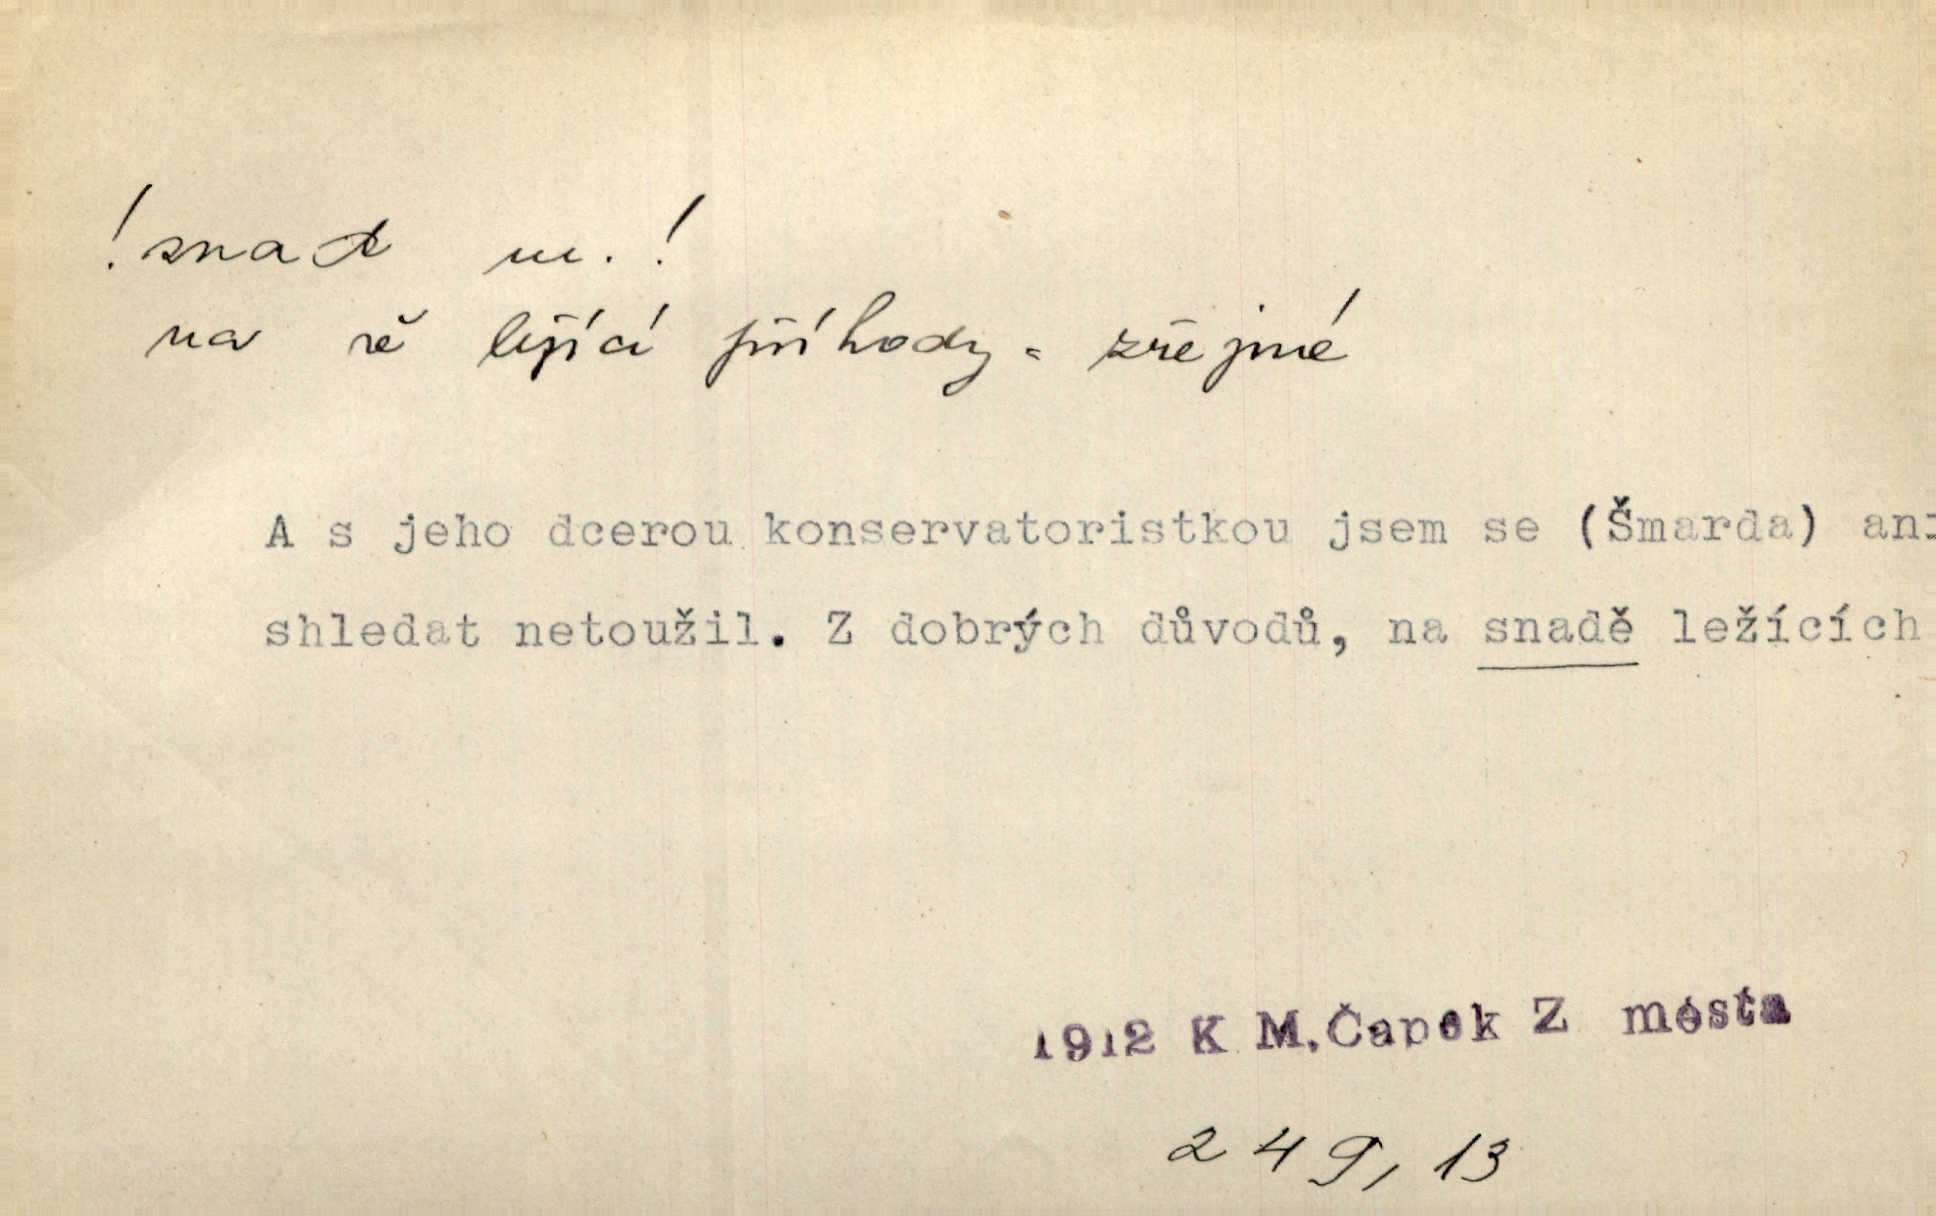 ! snad m. !
na -ě ležící příhody = zřejmé
A s jeho dcerou konservatoristkou jsem se (Šmarda) ani
shledat netoužil. Z dobrých důvodů, na snadě ležících
1912 K M. Čapek Z města
249, 13